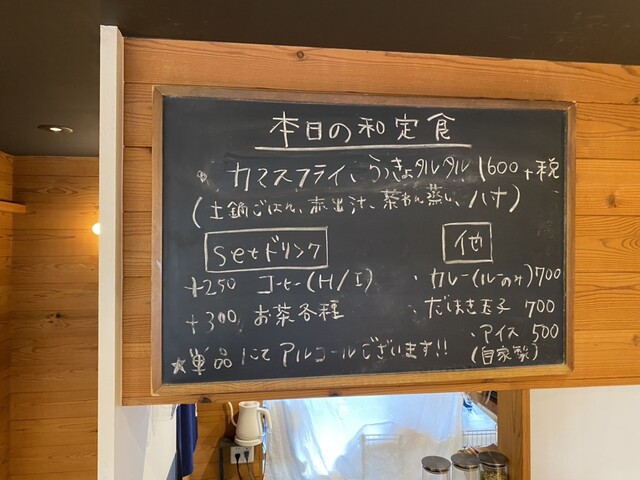 本日の和定食
・カマスフライ、らっきょタルタル 1600+税
(土鍋ごはん、赤出汁、茶わん蒸し、八寸)
setドリンク
+250 コーヒー(H/I)
+300 お茶各種
他
・カレー(ルーのみ)700
・だしまき玉子 700
・アイス 500
(自家製)
★単品にてアルコールございます!!